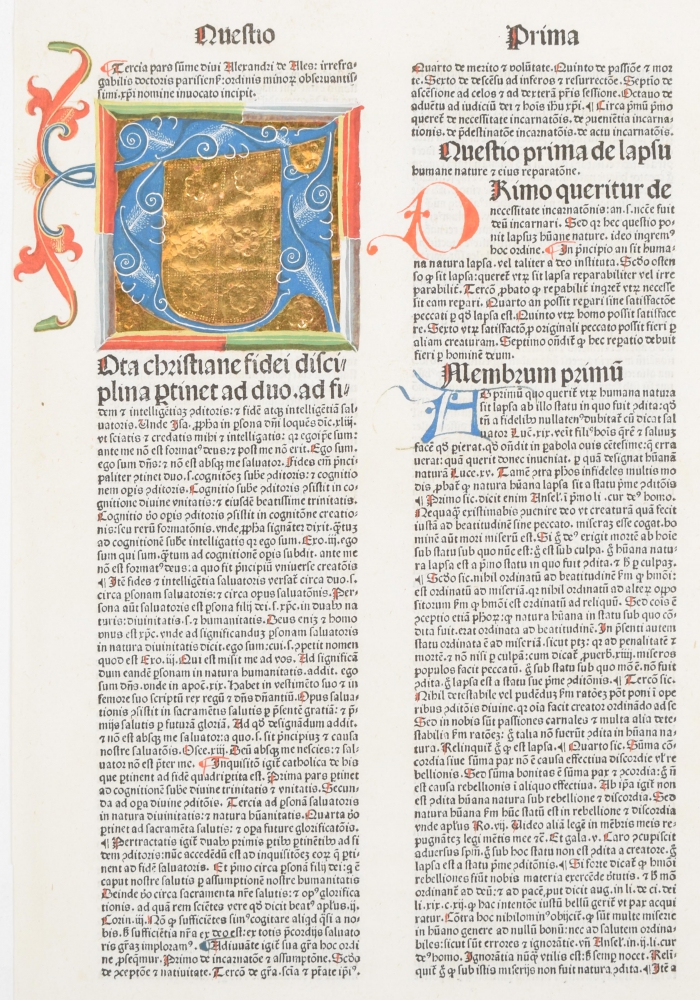 Questio
Prima
Tercia pars sume diui Alexandri de Ales: irrefra-
gabilis doctoris parisiens: ordinis minorꝝ obseruantis-
simi. xp̄i nomine inuocato incipit.
Ota christiane fidei disci-
plina ꝑtinet ad duo. ad fi-
dem ⁊ intelligētiaꝫ ꝯditoris: ⁊ fidē atqꝫ intelligētiā sal-
uatoris. Unde Isa. ꝓpha in ꝑsona dn̄i loquēs dic. xliij.
vt sciatis ⁊ credatis mihi ⁊ intelligatis: qꝛ ego ip̄e sum:
ante me nō est format⁹ deus: ⁊ post me nō erit. Ego sum.
ego sum dn̄s: ⁊ nō est absqꝫ me saluator. Fides em̄ pn̄ci-
paliter ꝑtinet duo. s. cognitōeꝫ sube ꝯditoris: ⁊ cognitio
nem opis ꝯditoris. Cognitio sube ꝯditoris ꝯsistit in co-
gnitione diuine vnitatis: ⁊ eiusdē beatissime trinitatis.
Cognitio ꝟo opis ꝯditoris ꝯsistit in cognitōne creatio-
nis: seu rerū formatōnis. vnde, ꝓpha signāter dixit. q̄tuꝫ
ad cognitionē sube intelligatis qꝛ ego sum. Exo. iij. ego
sum qui sum. q̄tum ad cognitionē opis subdit. ante me
nō est format⁹ deus: a quo fit pn̄cipiū vniuerse creatōis
¶ Itē fides ⁊ intelligētia saluatoris versat̄ circa duo. s.
circa ꝑsonam saluatoris: ⁊ circa opus saluatōnis. Per-
sona aūt saluatoris est ꝑsona filij dei. s. xp̄c. in duab⁹ na
turis: diuinitatis. s. ⁊ humanitatis. Deus eniꝫ ⁊ homo
vnus est xp̄c. vnde ad significanduꝫ ꝑsonam saluatoris
in natura diuinitatis dicit. ego sum: cui. s. ꝯpetit nomen
quod est Exo. iij. Qui est misit me ad vos. Ad significā
dum eandē ꝑsonam in natura humanitatis. addit. ego
sum dn̄s. vnde in apoc̄. xix. Habet in vestimēto suo ⁊ in
femore suo scriptū rex regū ⁊ dn̄s dn̄antiū. Opus salua-
tionis ꝯsistit in sacramētis salutis ꝑ pn̄sentē gratiā: ⁊ p̄-
mijs salutis ꝑ futurā gloriā. Ad qd̄ designādum addit.
⁊ nō est absqꝫ me saluator: a quo. s. fit pn̄cipiuꝫ ⁊ causa
nostre saluatōis. Osee. xiij. Deū absqꝫ me nescies: ⁊ sal-
uator nō est p̄ter me. ¶ Inquisitio igit̄ catholica de his
que ꝑtinent ad fidē quadriꝑtita est. Prima pars ꝑtinet
ad cognitionē sube diuine trinitatis ⁊ vnitatis. Secun-
da ad opa diuine ꝯditōis. Tercia ad ꝑsonā saluatoris
in natura diuinitatis: ⁊ natura hūanitatis. Quarta ꝟo
ꝑtinet ad sacramēta salutis: ⁊ opa future glorificatōis.
¶ Pertractatis igit̄ duab⁹ primis ꝑtib⁹ ꝑtinētib⁹ ad fi
dem ꝯditoris: nūc accedēdū est ad inquisitōeꝫ eoꝝ q̄ ꝑti-
nent ad fidē saluatoris. Et p̄mo circa ꝑsonā filij dei: q̄ ē
caput nostre salutis ꝑ assumptionē nostre humanitatis
Deinde ꝟo circa sacramenta nr̄e salutis: ⁊ op⁹ glorifica
tionis. ad quā rem sciētes vere qd̄ dicit beat⁹ apl̄us. ij.
Corin. iij. Nō qꝫ sufficiētes sim⁹ cogitare aliqd̄ q̄si a no-
bis. ꝫ sufficiētia nr̄a ex deo est: ex totis p̄cordijs saluato
ris gr̄aꝫ imploram⁹. ¶ Adiuuāte igit̄ sua gr̄a hoc ordi
ne, ꝓseqmur. Primo de incarnatōe ⁊ assumptōne. Scdo
de ꝯceptōe ⁊ natiuitate. Tercō de gr̄a. scīa ⁊ p̄tate ip̄i⁹.
Quarto de merito ⁊ volūtate. Quinto de passiōe ⁊ mor
te. Sexto de descēsu ad inferos ⁊ resurrectōe. Septio de
ascēsione ad celos ⁊ ad dexterā pr̄is sessione. Octauo de
aduētu ad iudiciū dei ⁊ hois ih̄u xp̄i. ¶ Circa p̄mū p̄mo
queret̄ de necessitate incarnatōis. de ꝯuenientia incarna-
tionis. de p̄destinatōe incarnatōis. de actu incarnatōis.
Questio prima de lapsu
humane nature ⁊ eius reparatōne.
Rimo queritur de
necessitate incarnatōnis: an. s. nc̄ē fuit
deū incarnari. Sed qꝛ hec questio po-
nit lapsuꝫ hūane nature. ideo inqrem⁹
hoc ordine. ¶ In pn̄cipio an sit huma-
na natura lapsa. vel taliter a deo instituta. Scd̄o osten
so qꝫ sit lapsa: queret̄ vtꝝ sit lapsa reparabiliter vel irre
parabilit̄. Tercō, ꝓbato qꝫ repabilit̄ inqret̄ vtꝝ necesse
sit eam repari. Quarto an possit repari sine satisfactōe
peccati ꝑ qd̄ lapsa est. Quinto vtꝝ homo possit satisface
re. Sexto vtꝝ satisfactō, ꝓ originali peccato possit fieri ꝑ
aliam creaturam. Septimo ondit̄ qꝫ hec repatio debuit
fieri ꝑ hominē deum.
Membrum primū
D primū quo querit̄ vtꝝ humana natura
sit lapsa ab illo statu in quo fuit ꝯdita: qd̄
tn̄ a fidelib⁹ nullaten⁹ dubitat̄ cū dicat sal
uator Luc. xix. venit fili⁹ hois q̄rē ⁊ saluuꝫ
facē qd̄ pierat. qd̄ ondit in pabola ouis cētesime: q̄ erra
uerat: quā querit donec inueniat. ꝑ quā designat̄ hūana
natura Luce. xv. Tamē ꝯtra ꝓhos infideles multis mo
dis, ꝓbat̄ qꝫ natura hūana lapsa sit a statu p̄me ꝯditōis
¶ Primo sic. dicit enim Ansel. i p̄mo li. cur de⁹ homo.
Nequaqꝫ existimabis ꝯuenire deo vt creaturā quā fecit
iustā ad beatitudinē sine peccato. miseraꝫ esse cogat. ho
minē aūt mori miserū est. Si ḡ de⁹ exigit mortē ab hoie
sub statu sub quo nūc est: ḡ est sub culpa. ḡ hūana natu-
ra lapsa est a p̄mo statu in quo fuit ꝯdita. ⁊ h̄ ꝑ culpaꝫ.
¶ Scd̄o sic. nihil ordinatū ad beatitudinē fm qꝫ hmōi:
est ordinatū ad miseriā. qꝛ nihil ordinatū ad alterꝝ oppo
sitorum fm qꝫ hmōi est ordinatū ad reliquū. Sed cois ē
ꝯceptio etiā ꝓhoꝝ: qꝫ natura hūana in statu sub quo cō-
dita fuit. erat ordinata ad beatitudinē. In pn̄senti autem
statu ordinata ē ad miseriā. sicut ptꝫ: qꝛ ad penalitatē ⁊
mortē. ⁊ nō nisi ꝑ culpā: cum dicat̄, ꝓuerb. xiiij. miseros
populos facit peccatū. ḡ sub statu sub quo mō ē. nō fuit
ꝯdita. ḡ lapsa est a statu sue p̄me ꝯditōnis. ¶ Tercō sic.
Nihil detestabile vel pudēduꝫ fm ratōeꝫ pōt poni i ope
ribus ꝯditōis diuine. qꝛ oia facit creator ordināndo ad se
Sed in nobis sūt passiones carnales ⁊ multa alia dete-
stabilia fm ratōeꝫ: ḡ talia nō fuerūt ꝯdita in hūana na-
tura. Relinquit̄ ḡ qꝫ est lapsa. ¶ Quarto sic. Sūma cō-
cordia siue sūma pax nō ē causa effectiua discordie vl̄ re
bellionis. Sed sūma bonitas ē sūma pax ⁊ ꝯcordia: ḡ n̄
est causa rebellionis i aliquo effectiua. Ab ip̄a igit̄ non
est ꝯdita hūana natura sub rebellione ⁊ discordia. Sed
natura hūana fm hūc statū est in rebellione ⁊ discordia
vnde apl̄us Ro. vij. Uideo aliā legē in mēbris meis re-
pugnāteꝫ legi mētis mee ⁊c̄. Et gala. v. Caro ꝯcupiscit
aduersus spm̄. ḡ sub hoc statu non est ꝯdita a creatore. ḡ
lapsa est a statu p̄me ꝯditōnis. ¶ Si forte dicat̄ qꝫ hmōi
rebelliones fiūt nobis materia exercēde ꝟtutis. ⁊ h̄ mō
ordinant̄ ad deū: ⁊ ad pacē. put dicit aug. in li. de ci. dei
li. xix. c. xij. qꝫ hac intentōe iustū bellū gerit̄ vt pax acqui
ratur. Cōtra hoc nihilomin⁹ obijcit̄. qꝫ sūt multe miserie
in hūano genere ad nullū bonū: nec ad salutem ordina-
biles: sicut sūt errores ⁊ ignorātie. vn̄ Ansel. in. ij. li. cur
de⁹ homo. Ignorātia nūqꝫ vtilis est: ꝫ semp nocet. Reli-
quit̄ ḡ qꝫ sub istis miserijs non fuit natura ꝯdita. ¶ Itē a